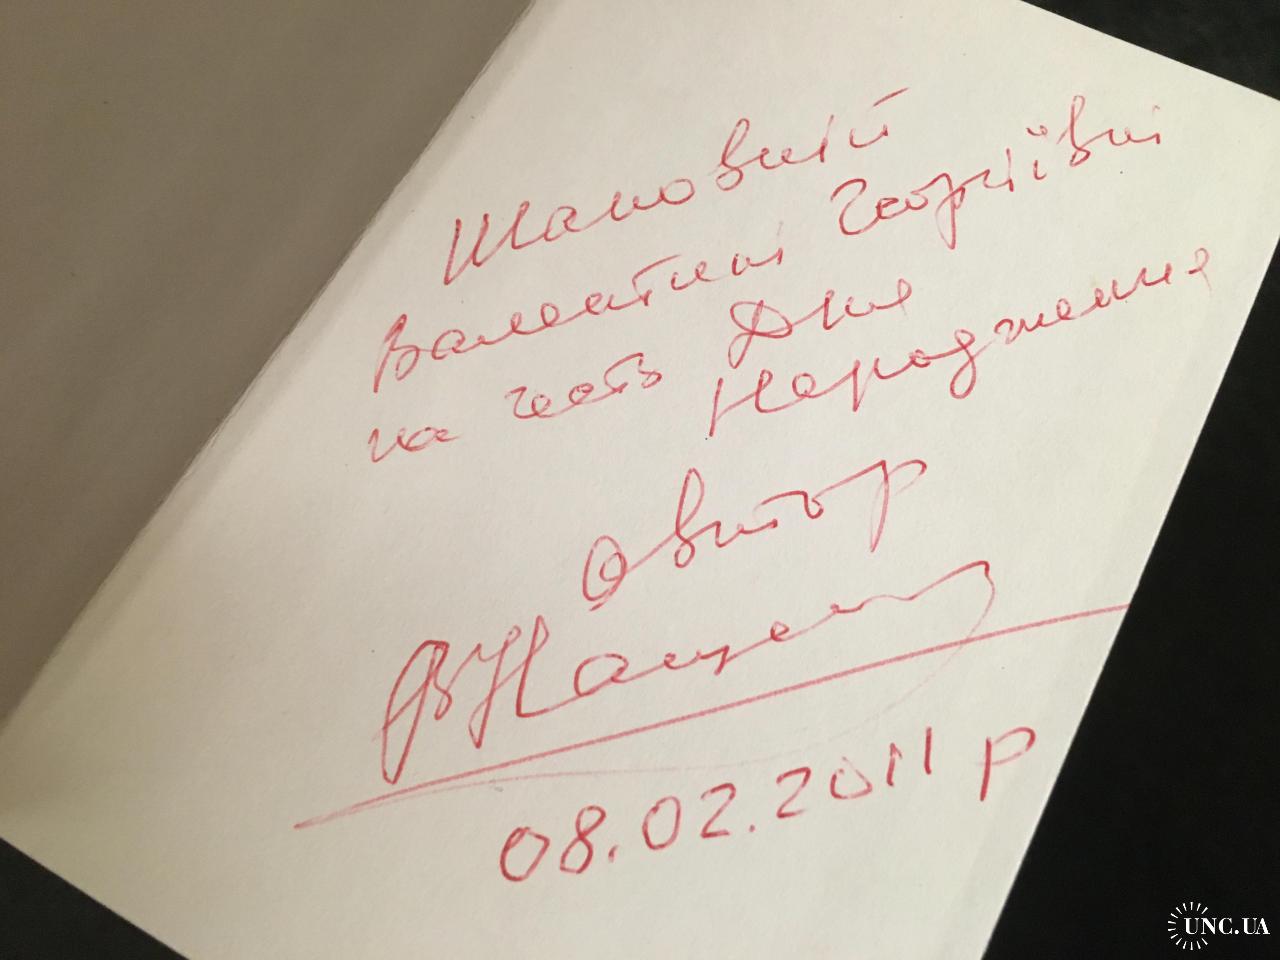 Шановній
Валентині Георгіївні
на честь Дня
Народження
Автор
08.02.2011 р
UNC.UA